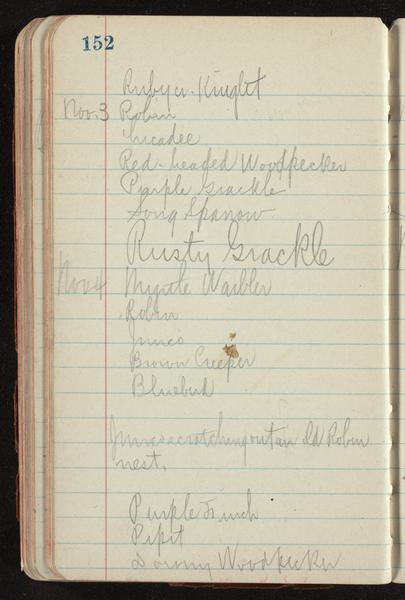 152
Ruby cr. Kinglet
Nov. 3 Robin
Chicadee
Red-headed Woodpecker
Purple Grackle
Song Sparrow
Rusty Grackle
Nov 4 Myrtle Warbler
Robin
Junco
Brown Creeper
Bluebird
Junco scratching out an old Robin
nest.
Purple Finch
Pipit
Downy Woodpecker